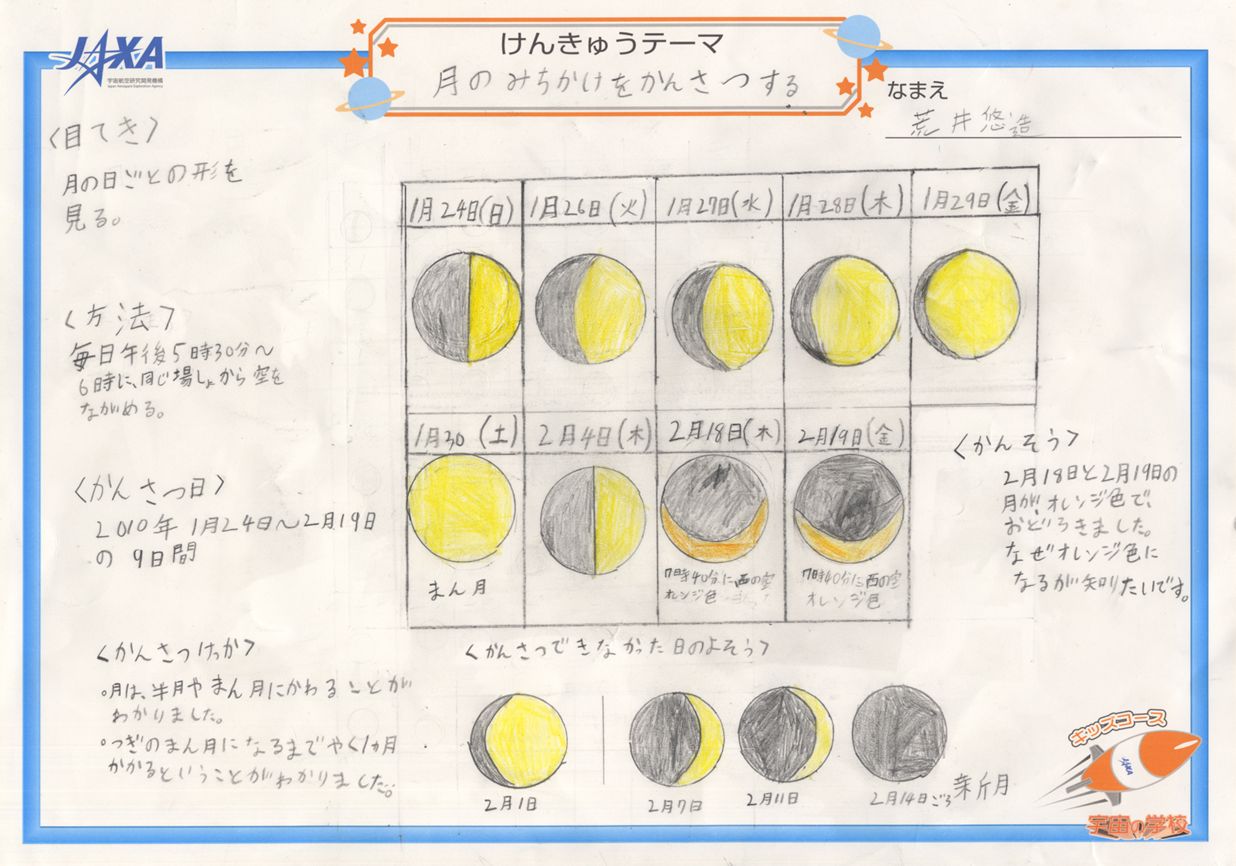 JAXA
宇宙航空研究開発機構
Japan Aerospace Exploration Agency
けんきゅうテーマ
月のみちかけをかんさつする
なまえ
荒井悠造
〈目てき〉
月の日ごとの形を
見る。
〈方法〉
毎日午後5時30分～
6時に、同じ場しょから空を
ながめる。
〈かんさつ日〉
2010年1月24日～2月19日
の9日間
〈かんさつけっか〉
○月は、半月やまん月にかわることが
わかりました。
○つぎのまん月になるまでやく1ヵ月
かかるということがわかりました。
1月24日(日)
1月26日(火)
1月27日(水)
1月28日(木)
1月29日(金)
1月30(土)
2月4日(木)
2月18日(木)
2月19日(金)
まん月
7時40分に西の空
オレンジ色
7時40分に西の空
オレンジ色
〈かんそう〉
2月18日と2月19日の
月が、オレンジ色で、
おどろきました。
なぜオレンジ色に
なるが知りたいです。
〈かんさつできなかった日のよそう〉
2月1日
2月7日
2月11日
2月14日ごろ
新月
キッズコース
JAXA
宇宙の学校